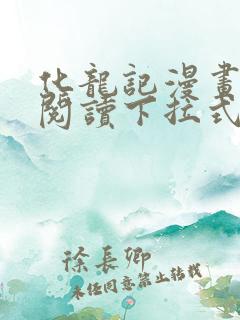 化龍記漫畫
閱讀下拉式
徐長卿
未經同意禁止轉載